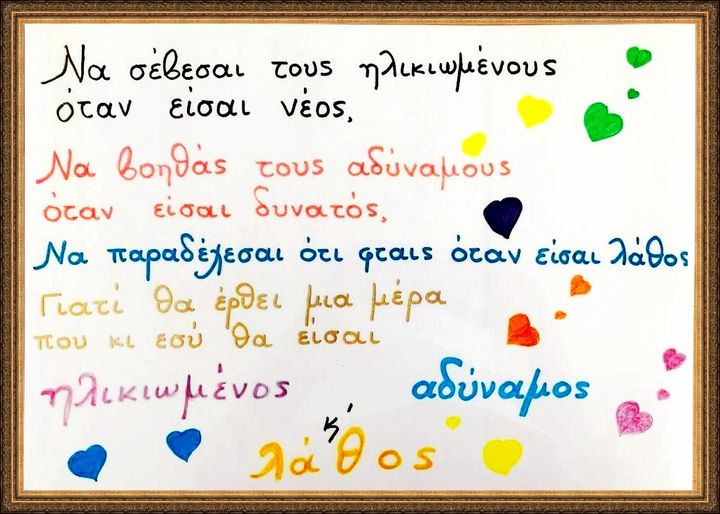 Να σέβεσαι τους ηλικιωμένους
όταν είσαι νέος,
Να βοηθάς τους αδύναμους
όταν είσαι δυνατός,
Να παραδέχεσαι ότι φταις όταν είσαι λάθος
Γιατί θα έρθει μια μέρα
που κι εσύ θα είσαι
ηλικιωμένος αδύναμος
κ'
λάθος